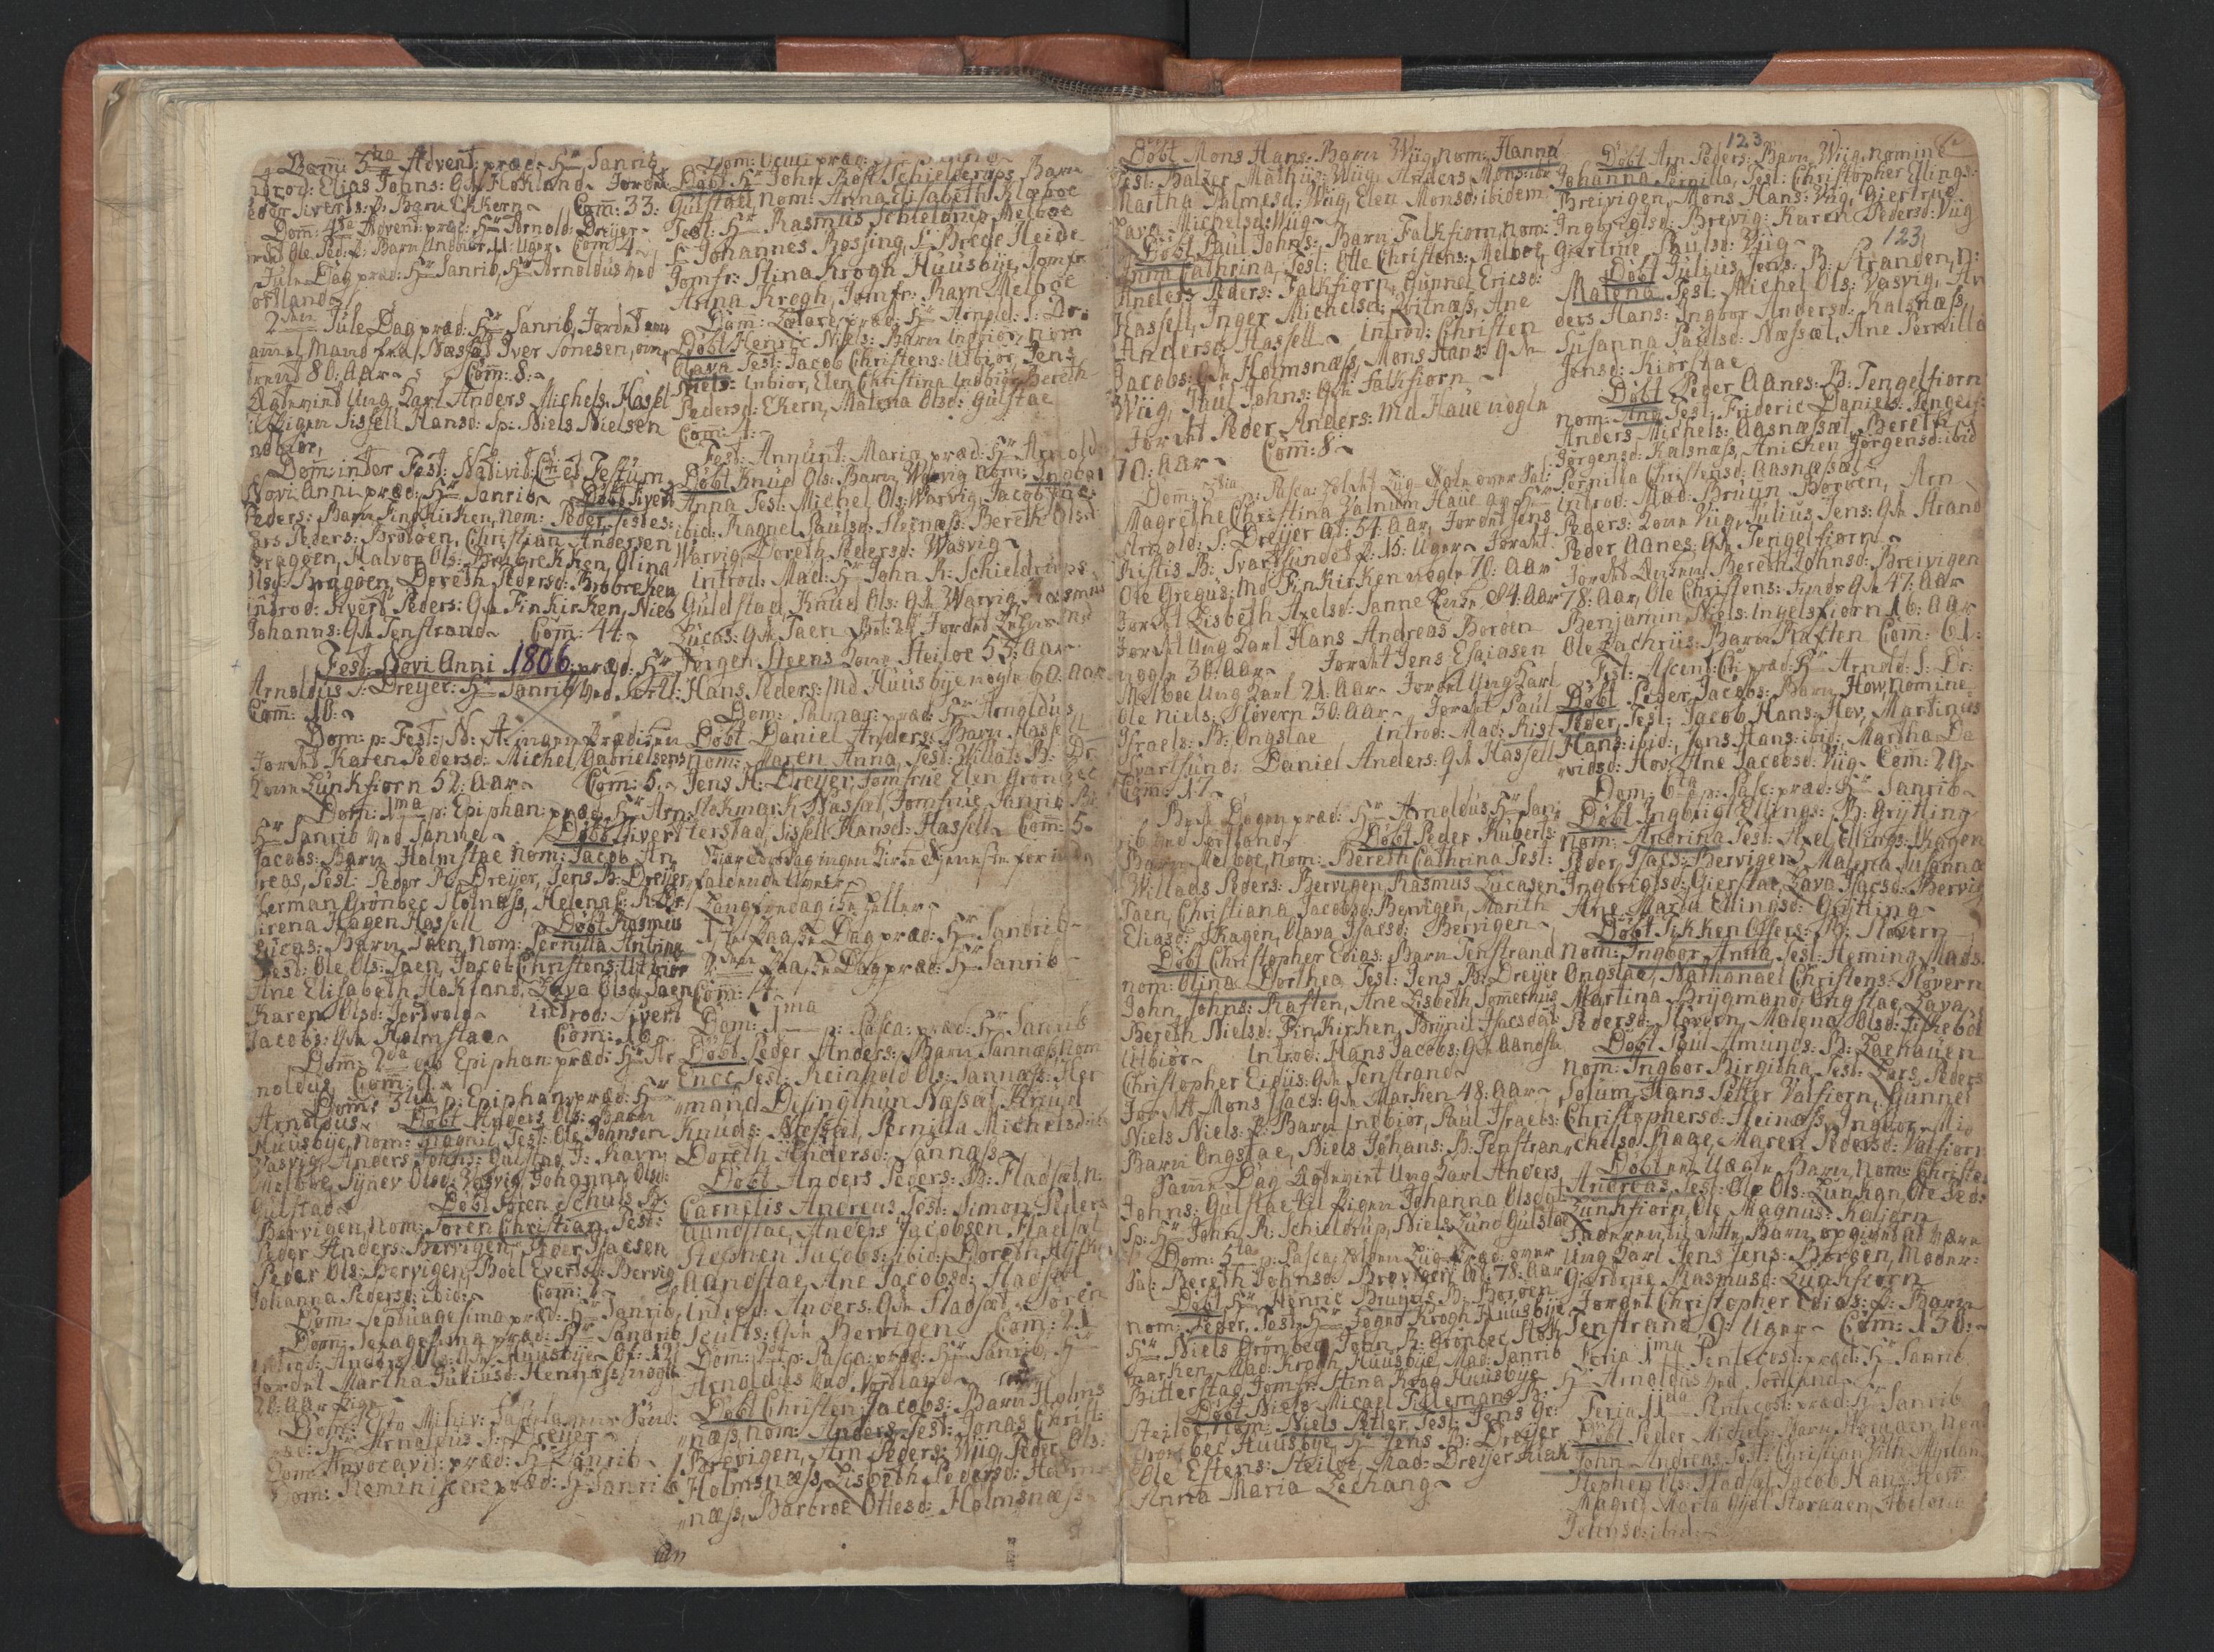 Dom: 3tia Advent: præd: Hr Sanrib
Introd: Elias Johns: Qde Hokland Jordet
Peder Siverts: p: Barn Ekkern Com: 33:
Dom: 4ta Advent: præd: Hr Arnold: Dreyer
Ole Ped: p: Barn Indbior 11: Uger Com: 4
Jule Dag præd: Hr Sanrib, Hr Arnoldus ved
Sortland
2den Jule Dag præd: Hr Sanrib, Jordet en
gammel Mand fra Næssæt Iver Jonesen, om
trent 80: Aar Com: 8:
Ægteviet Ung Karl Anders Michels: Hasel
til Pigen Sissell Hansd: Sp: Niels Nielsen
Indbior,
Dom: inter Fest: Nativit: Chr: et Festum
Novi Anni præd: Hr Sanrib Døbt Sivert
Peders: Barn Finkirken, Nom: Peder, Testes:
Lars Peders: Brogøen, Christian Andersen
Bragøen, Halvor Ols: Brobrekken, Olina
Olsd: Bragøen, Doreth Pedersd: Brobrekken
Introd: Sivert Peders: Qde Finkirken, Niels
Johanns: Qde Tenstrand Com: 44:
Fest: Novi Anni 1806 præd: Hr
Arnoldus S: Dreyer: Hr Sanrib ved Sortl:
Com: 10:
Dom: p: Fest: N: A: ingen Prædiken
Jordet Karen Pedersd: Michel Gabrielsens
Kone Lunkfiorn 52: Aar Com: 5.
Dom: 1ma p: Epiphan: præd: Hr Arn:
Hr Sanrib ved Sannes Døbt Sivert
Jacobs: Barn Holmstae Nom: Jacob An
dreas, Test: Peder A: Dreyer, Jens B: Dreyer
Herman Grønbec Stolnæss, Helena
Sirena Hagen Hassell Døbt Rasmus
Lucas: Barn Taen, Nom: Pernilla Antrina
Test: Ole Ols: Taen, Jacob Christens: Utbior
Ane Elisabeth Hokland, Lava Olsd: Taen
Karen Olsd: Sortvold Introd: Sivert
Jacobs: Qde Holmstae Com: 16.
Dom: 2da p: Epiphan: præd: Hr Ar
noldus Com: 9
Dom: 3tia p: Epiphan: præd: Hr
Arnoldus Døbt Anders Ols: Barn
Huusbye, Nom: Magnil, Test: Ole Johnsen
Vasvig, Anders Johns: Gulstad, J: Ravn
Melboe, Synev Olsd: Vasvig, Johanna Olsd:
Gulstad Døbt Søren Schuls B:
Bervigen, Nom: Søren Christian, Test:
Peder Anders: Bervigen, Peder Isacsen
Peder Ols: Bervigen, Boel Evertsd: Bervig
Johanna Pedersd: ibid: Com: 7
Dom: Septuagesima præd: Hr Sanrib,
Dom: Sexagesima præd: Hr Sandrib
Introd: Anders Ols: Qde Huusbye Of: 12
Jordet Martha Juliusd: Hennæss nogle
20: Aar Pige
Dom: Esto Mihi
præd: Hr Arnoldus S: Dreyer
Dom: Invocavit: præd: Hr Sanrib
Dom: Reminiscere præd: Hr Sanrib
Dom: Oculi præd: Hr
Døbt Hr John Rost Schielderups Barn
Gulstad nom: Anna Elisabeth Klæboe
Test: Hr Rasmus Schielderup Melboe
Sr Johannes Rossing, Sr Brede Heide
Jomfr: Stina Krogh Huusbye, Jomfr
Anna Krogh, Jomfr: Ravn Melboe
Dom: Lætare præd: Hr Arnold: S: Dr:
Døbt Henric Niels: Barn Indbior, nom
Olava Test: Jacob Christens: Utbior, Jens
Niels: Inbior, Elen Christina Indbior, Bereth
Pedersd: Ekern, Malena Olsd: Gulstae
Com: 1:
Fest: Annunt: Maria præd: Hr Arnold:
Døbt Knud Ols: Barn Warvig nom: Ingbor
Anna Test: Michel Ols: Warvig, Jacob Jne:
ibid: Ragnel Paulsd: Steenæss: Bereth Olsd
Warvig, Doreth Pedersd: Wasvig
Introd: Mad: Hr John R: Schieldrups,
Guldstad, Knud Ols: Qde Warvig, Rasmus
Lucas: Qde Taen
Jørgen Steens Kone Steiloe 55: Aar
Hans Peders: Md Huusbye nogle 60: Aar
Dom: Palmar: præd: Hr Arnoldus
Døbt Daniel Anders: Barn Hassell
nom: Maren Anna, Test: Willats B: Dr
Jens H: Dreyer, Jomfrue Elen Grønbec
Stokmark Næssæt, Jomfrue Sanrib Bi
terstad, Sissell Hansd: Hassell Com: 5
Skiærtorsdag ingen Kirke Tieneste for ind
faldende Uveir
Langfredag ikke heller
1ste Paaske Dag præd: Hr Sandrib
2den Paaske Dag præd: Hr Sanrib
Com: 14:
Dom: 1ma p: Pasca: præd: Hr Sanrib
Døbt Peder Anders: Barn Sannæs, Nom
Encc, Test: Reinhold Ols: Sannæs: Her
mand Disingthun Næssæt, Knud
Knuds: Næssæt, Pernilla Michelsd: ib
Doreth Andersd: Sannæss
Døbt Anders Peders: B: Fladsæt n:
Cornelis Andreas Test: Simon Peders
Aundstae, Anders Jacobsen, Fladsæt
Stephen Jacobs: ibid: Doreth
Aandstae, Ane Jacobsd: Fladsæt
Introd: Anders: Qde Fladsæt, Søren
Sculs: Qde Bervigen Com: 21
Dom: 2da p: Pasca: præd: Hr Sanrib, Hr
Arnoldus ved Sortland
Døbt Christen Jacobs: Barn Holms
næss, nom: Anders Test: Jonas Christ:
Brevigen, Arn Peders: Wiig, Peder Ols:
Holmsnæss, Lisbeth Pedersd: Holms
næss, Barbroe Ottesd: Holmsnæss
123
Døbt Mons Hans: Barn Wiig, nom: Hanna
Test: Balzer Mathiis: Wiig, Anders Mons: ibi
Martha Holmesd: Wiig, Elen Monsd: ibidem
Lava Michelsd: Wiig
Døbt Paul Johns: Barn Falkfiorn, nom:
Anna Cathrina, Test: Otte Christens: Melboe,
Anders Peders: Falkfiorn, Gunnel Ericsd:
Hassell, Inger Michelsd: Hvitnæss, Ane
Andersd: Hassell Introd: Christen
Jacobs: Qde Holmsnæss, Mons Hans: Qde
Wiig, Paul Johns: Qde Falkfiorn
Jordet Peder Anders: Md Haue nogle
70: Aar Com: 8
Dom: 3tia p: Pasca: holdt Lüg Præken over Sal:
Magrethe Christina Zalnum Haue
Arnold: S: Dreyer al: 54: Aar, Jordet Jens
Ristis B: Svartsundet p: 15: Uger Jordet
Ole Gregus: Md Finkirken nogle 70: Aar
Jordet Lisbeth Axelsd: Sanne Lensm: 84: Aar
Jordet Ung Karl Hans Andreas Borøen
nogle 30: Aar Jordet Jens Esaiasen
Melboe Ung Karl 21: Aar Jordet Ung Karl
Ole Niels: Støvern 30: Aar Jordet Paul
Israels: B: Ongstae Introd: Mad: Rist
Svartsund: Daniel Anders: Qde Hassell
Com: 17
Bede Dagen præd: Hr Arnoldus, Hr San
rib ved Sortland Døbt Peder Ruberts:
Barn Melboe, nom: Bereth Cathrina Test:
Willads Peders: Bervigen, Rasmus Lucasen
Taen, Christiana Jacobsd: Bervigen, Marith
Eliasd: Skagen, Olava Isacsd: Bervigen
Døbt Christopher Edias: Barn Tenstrand
nom: Olina Dorthea Test: Jens B: Dreyer
John Johns: Raften, Ane Lisbeth Jomethus
Bereth Nielsd: Finkirken, Brynil Isacsdat
Utbior Introd: Hans Jacobs: Qde Aandsta
Christopher Eidiis: Qde Tenstrand
Jordet Mons Isacs: Qde Marken 48: Aar
Niels Niels: p: Barn Indbior, Paul Israels:
Barn Ongstae, Niels Johans: B: Tenstran
Samme Dag Ægteviet Ung Karl Anders
Johns: Gulstae til Pigen Johanna Olsd: ib
Sp: Hr John R: Schieldrup, Niels Lund Gulstae
Dom: 5ta p: Pasca: holden Lüg Præd: over
Sal: Bereth Johnsd: Brevigen al: 78: Aar
Døbt Hr Henric Bruuns B: Borøen
nom: Peder, Test: Hr Fogd Krogh Huusbye
Hr Niels Grønbec, John B: Grønbec Stok
marken, Mad: Krogh, Huusbye, Mad: Sanrib
Bitterstad, Jomfr: Stina Krog Huusbye
Døbt Niels Micael Tidlemans B:
Steiloe, Nom: Niels Petter, Test: Jens Gr:
Grønbec Huusbye, Hr Jens B: Dreyer
Ole Estens: Steiloe, Mad: Dreyer Klak
Anna Maria Lechang
Døbt Arn Peders: Barn Wiig, nomine
Johanna Pernilla, Test: Christopher Ellings:
Breivigen, Mons Hans: Wiig, Giertrue
Ingbrigtsd: Brevig: Karen Pedersd: Viig
Giertrue Paulsd: Viig 123
Døbt Julius Jens: B: Stranden, n:
Malena Test: Michel Ols: Vasvig, An
ders Hans: Ingbor Andersd: Kalsnæss,
Susanna Paulsd: Næssæt, Ane Pernilla
Jensd: Kiørstae
Døbt Peder Aanes: B: Tengelfiorn
nom: Ane, Test: Frideric Daniels: Tengelf:
Anders Michels: Aasnæssæt, Bereth
Jørgensd: Kalsnæss, Anichen Jørgensd: ibid
Pernilla Christensd: Aasnæssæt
Introd: Mad: Bruun Borøen, Arn
Peders: Kone Viig, Julius Jens: Qde Strand
Peder Aanes: Qde Tengelfiorn
Jordet Bereth Johnsd: Breivigen
78: Aar, Ole Christens: Qde 47: Aar
Benjamin Niels: Ingelsfiorn 16: Aar
Ole Zachriis: Barn Raften Com: 61:
Fest: Ascens: Chr: præd: Hr Arnold: S: Dr:
Døbt Peder Jacobs: Barn Hov, Nomine
Peder, Test: Jacob Hans: Hov, Martinus
Hans: ibid:, Jens Hans: ibid: Martha Da
vidsd: Hov, Ane Jacobsd: Viig Com: 29
Dom: 6ta p: Pasc: præd: Hr Sanrib
Døbt Ingbrigt Ellings: B: Grytting
nom: Andrina Test: Axel Ellings: Skagen
Peder Isacs: Bervigen, Malena Susanna
Ingbrigtsd: Gierstae, Lava Isacsd: Bervig
Ane Maria Ellingsd: Grytting
Døbt Sikken Offers: B: Støvern
nom: Ingbor Anna, Test: Heming Mads:
Ongstae, Nathanael Christens: Støvern
Martina Brygmand, Ongstae, Lava
Pedersd: Støvern, Malena Olsd: Fiskebøl
Døbt Paul Amunds: B: Lachauen
nom: Ingbor Birgitha, Test: Lars Peders
Solum, Hans Petter Valfiorn, Gunnel
Christophersd: Steinæss, Ingbor Mi
chelsd Kage, Maren Pedersd: Valfiorn
Døbt et Uægte Barn, nom: Christen
Andreas, Test: Ole Ols: Lunkan, Ole Ped:
Lunkfiorn, Ole Magnus: Kaliorn
Faderen til dette Barn opgivet at være
Ung Karl Jens Jens: Borøen, Moder:
Giertrue Rasmusd: Lunkfiorn
Jordet Christopher Edias: p: Barn
Tenstrand 9: Uger Com: 130:
Feria 1ma Pentecost: præd: Hr Sanrib
Hr Arnoldus ved Sortland
Feria 2da Pentecost: præd: Hr Sanrib
Døbt Peder Michels: Barn Storaaen, nom
John Andreas Test: Christian Vith Myrland
Stephen Ols: Fladsæt, Jacob Hans: Hov
Magret Marta Storaaen, Abelona
Johnsd: ibid: